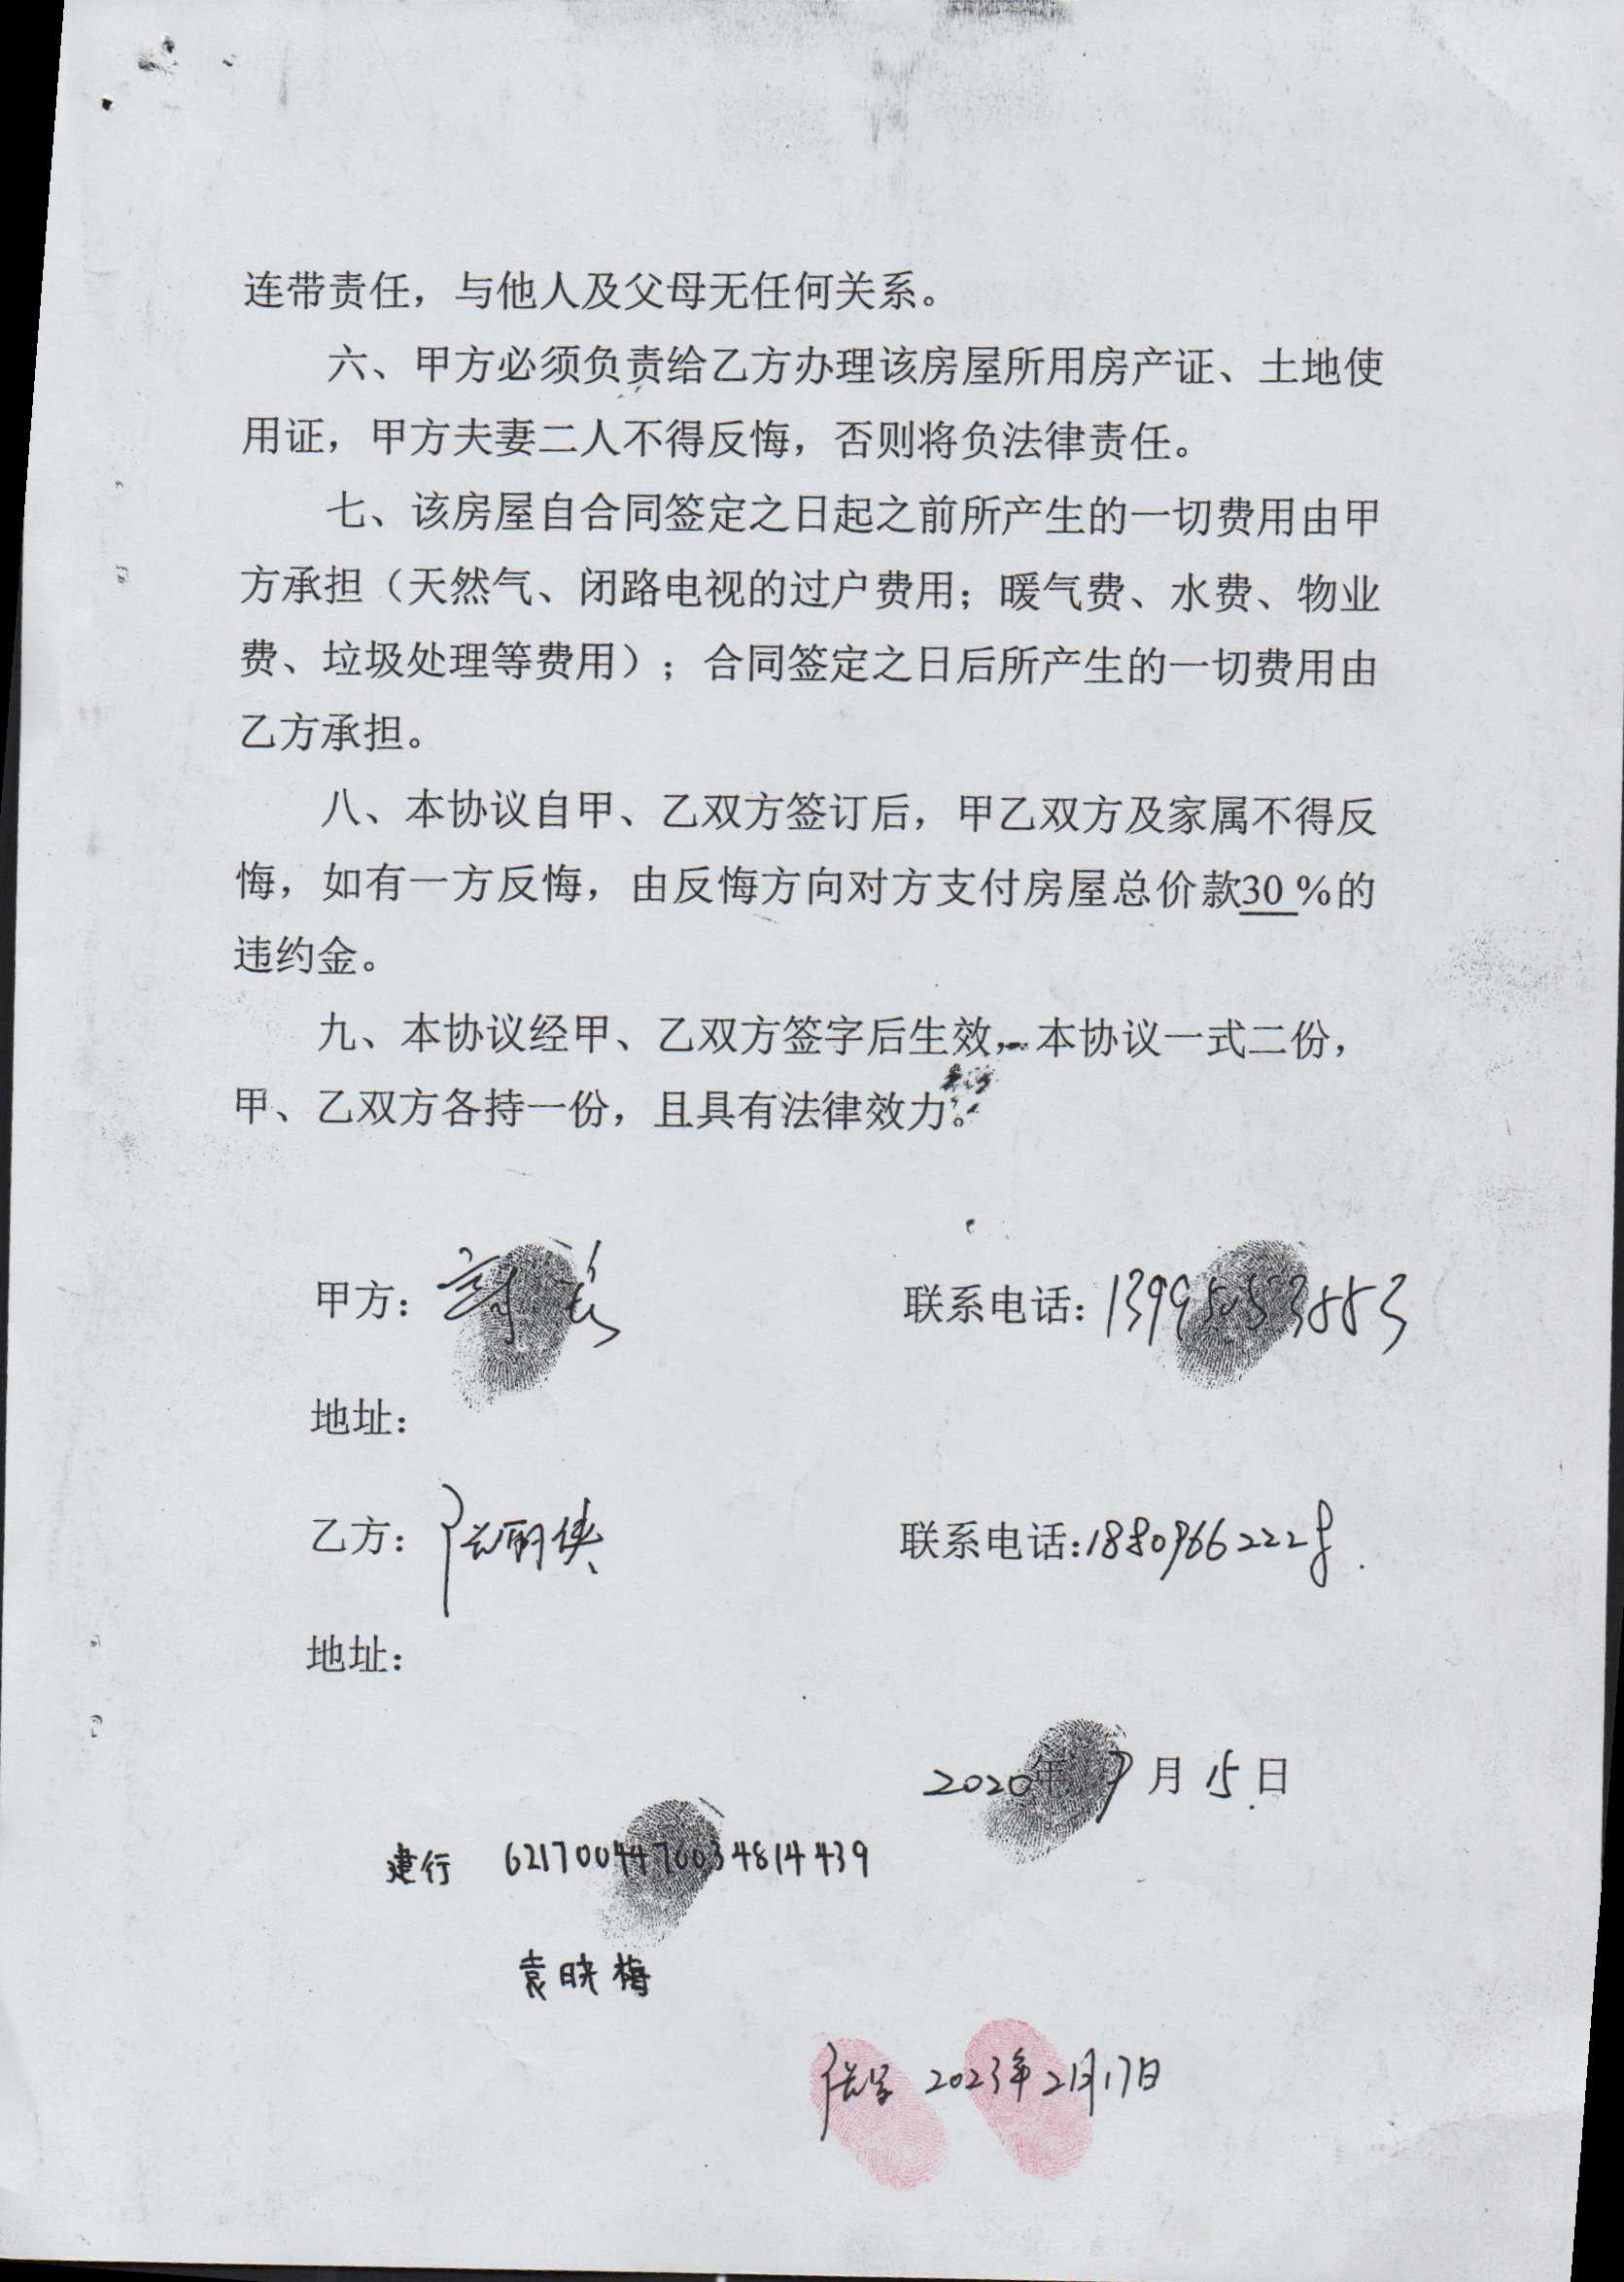 连带责任，与他人及父母无任何关系。
六、甲方必须负责给乙方办理该房屋所用房产证、土地使
用证，甲方夫妻二人不得反悔，否则将负法律责任。
七、该房屋自合同签定之日起之前所产生的一切费用由甲
方承担（天然气、闭路电视的过户费用；暖气费、水费、物业
费、垃圾处理等费用）；合同签定之日后所产生的一切费用由
乙方承担。
八、本协议自甲、乙双方签订后，甲乙双方及家属不得反
悔，如有一方反悔，由反悔方向对方支付房屋总价款30 %的
违约金。
九、本协议经甲、乙双方签字后生效，本协议一式二份，
甲、乙双方各持一份，且具有法律效力。
甲方： 联系电话：
地址：
乙方：张丽侠 联系电话：18809662228
地址：
2020年 月 15 日
建行 6217004470034814439
袁晓梅
2023年2月17日